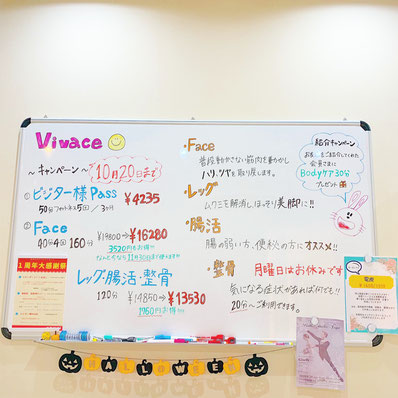 Vivace
~キャンペーン~ 10月20日まで
①ビジター様Pass ¥4235
50分フィットネス5回/3ヶ月
②Face
40分4回 160分 ¥19800→¥16280
3520円もお得!!
レッグ・腸活・整骨
120分 ¥14850→¥13530
1周年大感謝祭
・Face
普段動かさない筋肉を動かし
ハリ、ツヤを取り戻します。
・レッグ
ムクミを解消しほっそり美脚に!!
・腸活
腸の弱い方、便秘の方にオススメ!!
・整骨 月曜日はお休みです
気になる症状があれば何でも!!
20分~ご利用できます。
紹介キャンペーン
お友達をご紹介してくれた
会員さまに
Bodyケア30分
プレゼント
HALLOWEEN